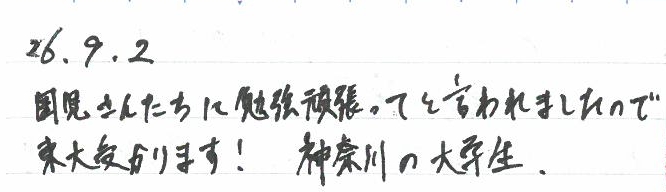 26.9.2
国見さんたちに勉強頑張ってと言われましたので
東大受かります! 神奈川の大学生.